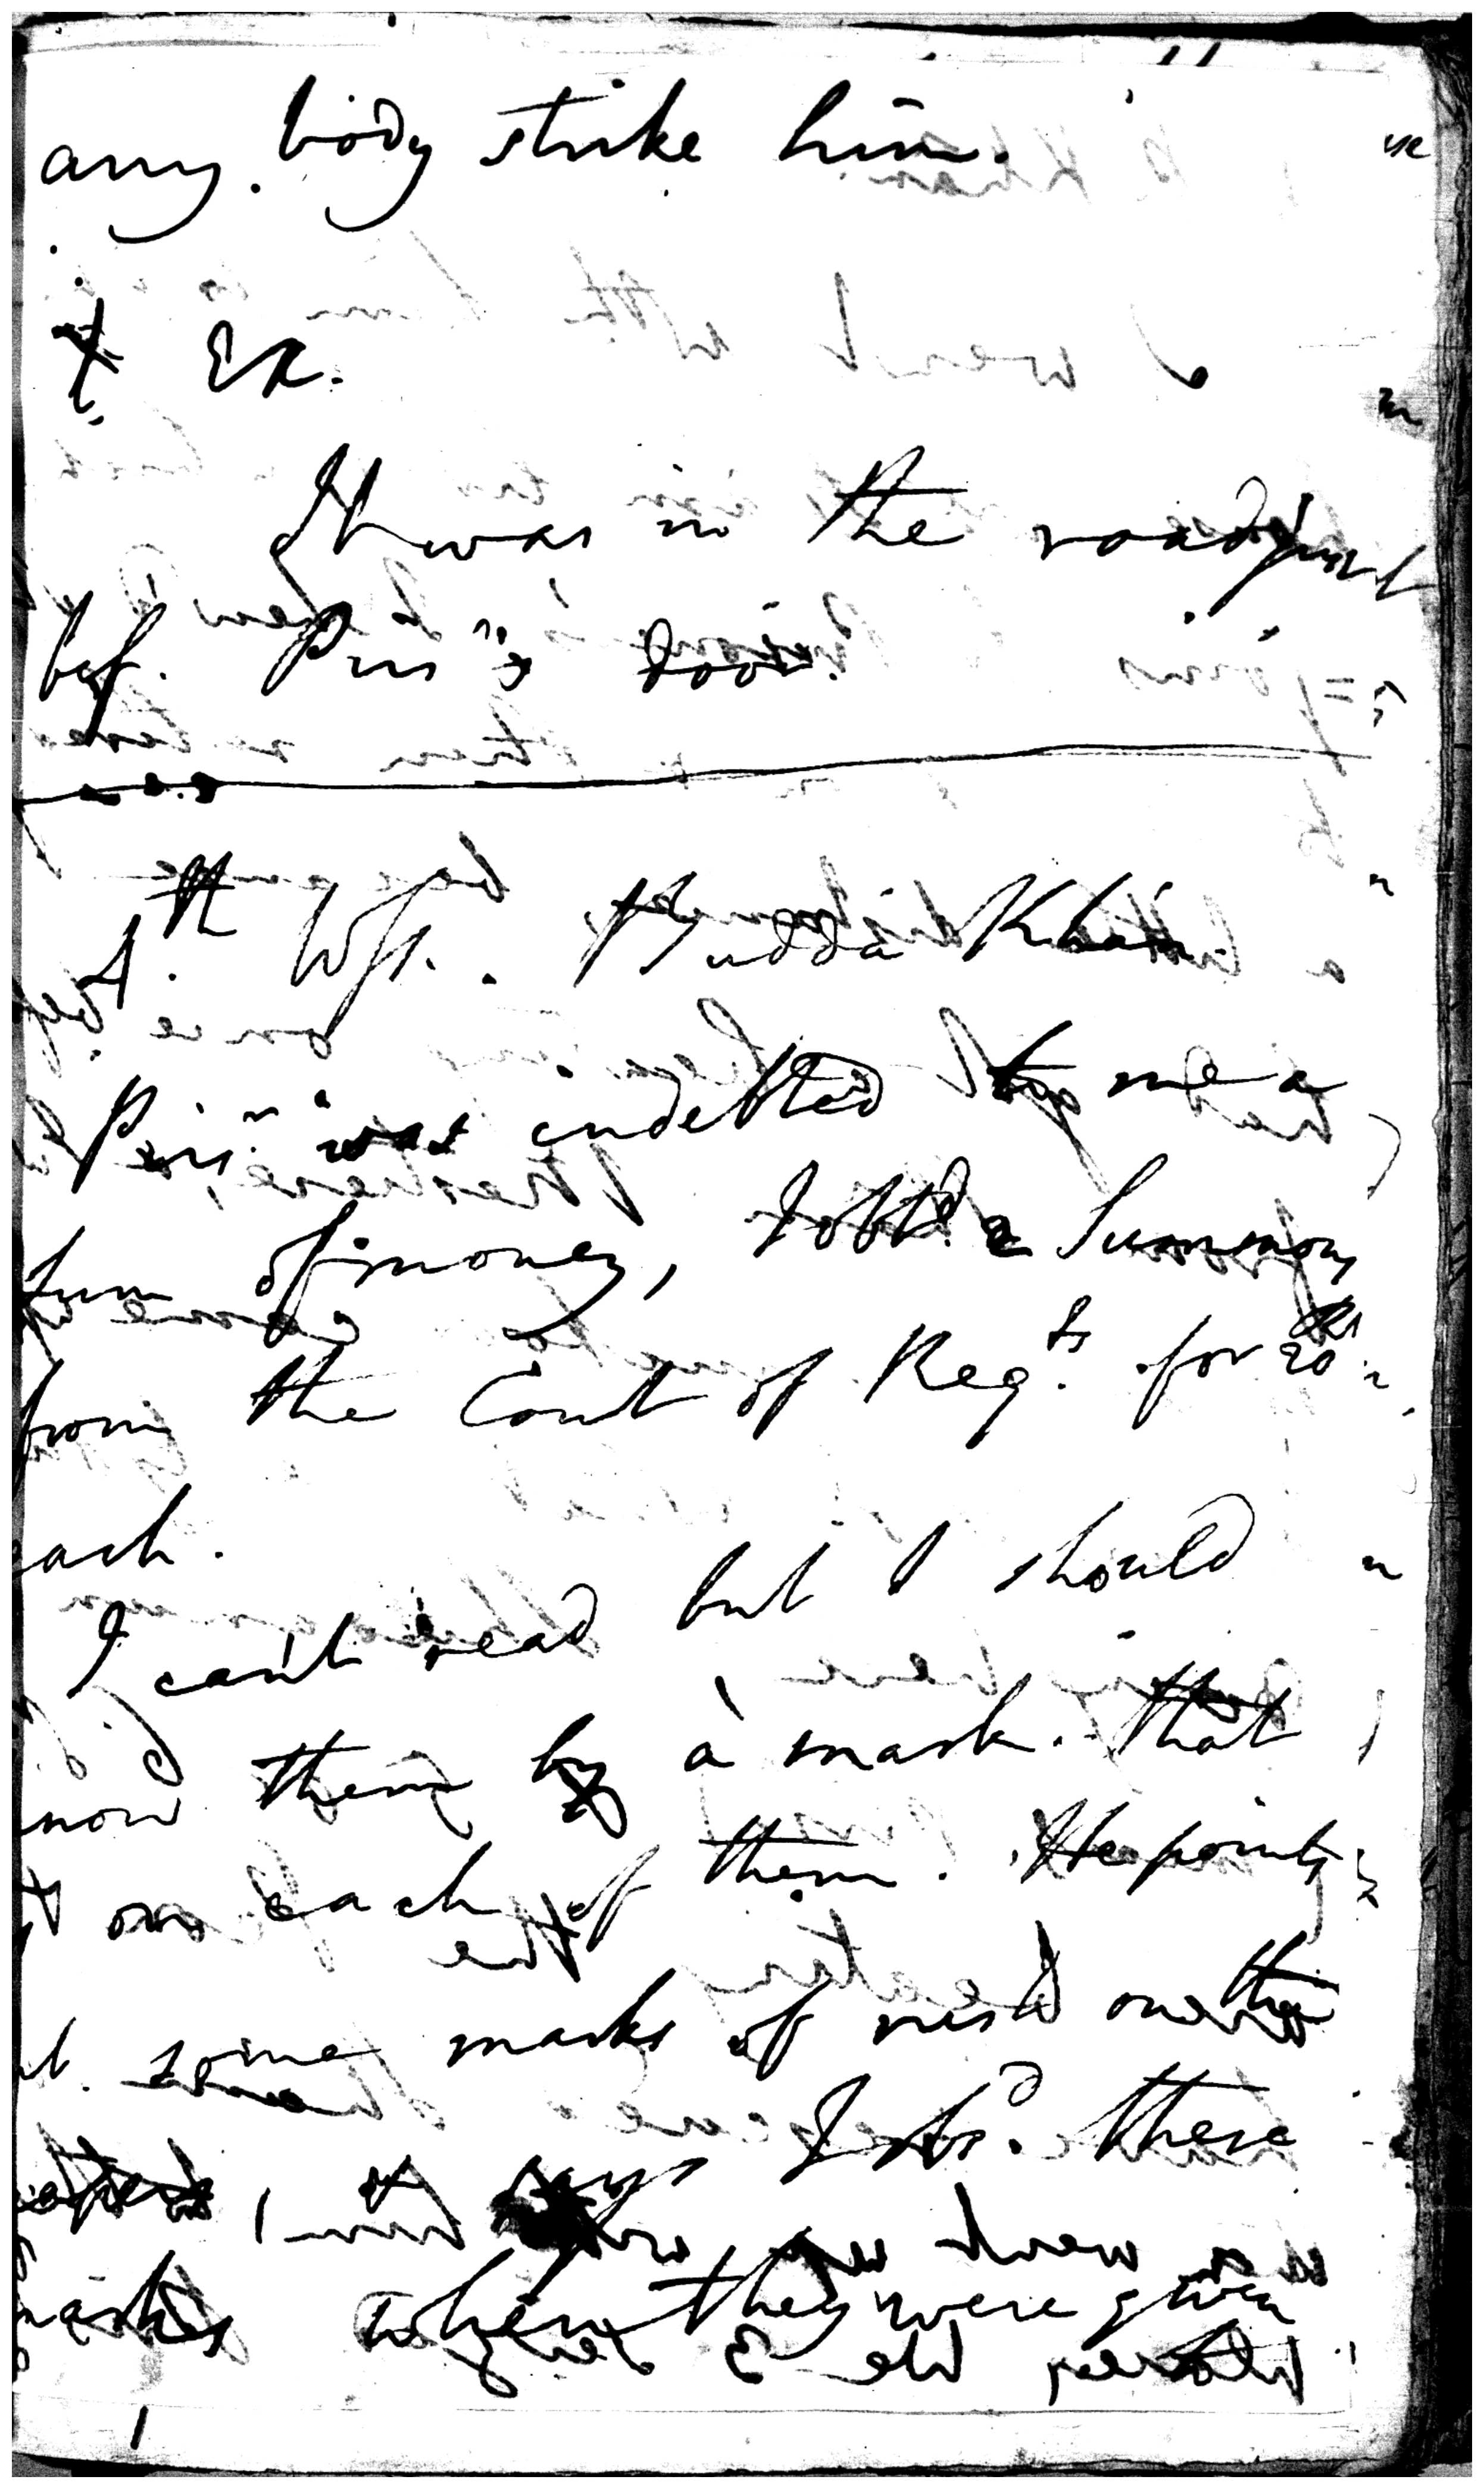 any body strike him.
X Ex.
It was in the road just
bef. Pris^rs door.
4^th Wit. Budda Khan
Pris^r was indebted to me a
sum of money, I obt^d a Summons
from the Court of Req^ts for 20 Rs
each.
I can't read but I should
know them by a mark that
on each of them. He points
some marks of resd on the
says I obs^d these
marks when they were given